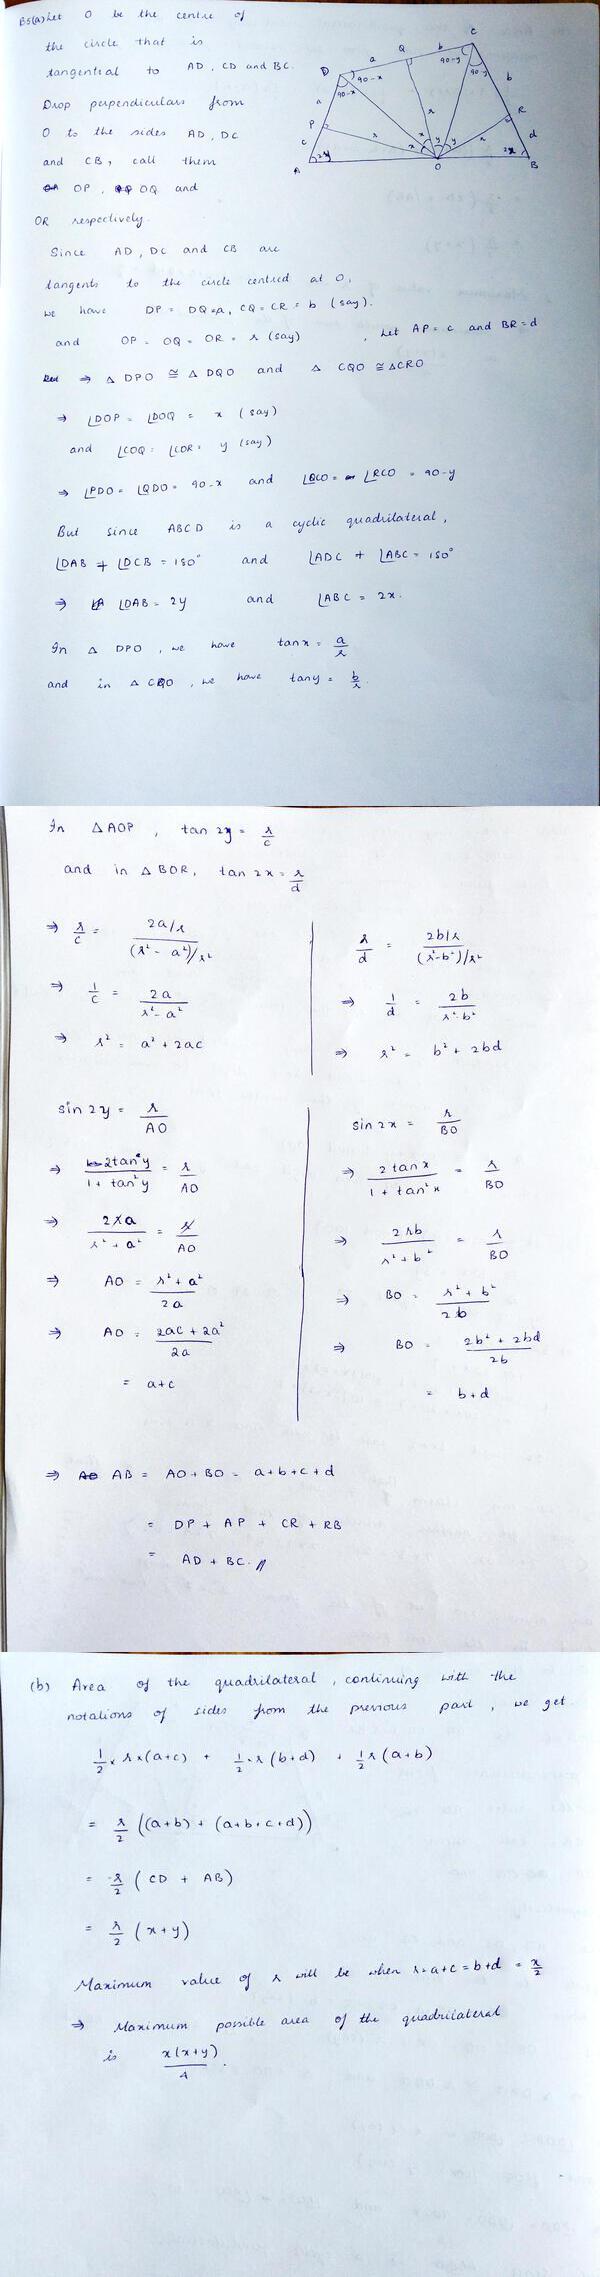 B5(a) Let O be the centre of
the circle that is
tangential to AD, CD and BC.
Drop perpendiculars from
O to the sides AD, DC
and CB, call them
OP, OQ and
OR respectively.
Since AD, DC and CB are
tangents to the circle centred at O,
we have DP = DQ = a, CQ = CR = b (say).
and OP = OQ = OR = r (say), Let AP = c and BR = d
⇒ △ DPO ≅ △ DQO and △ CQO ≅ △CRO
⇒ ∠DOP = ∠DOQ = x (say)
and ∠COQ = ∠COR = y (say)
⇒ ∠PDO = ∠QDO = 90-x and ∠QCO = ∠RCO = 90-y
But since ABCD is a cyclic quadrilateral,
∠DAB + ∠DCB = 180° and ∠ADC + ∠ABC = 180°
⇒ ∠DAB = 2y and ∠ABC = 2x.
In △ DPO, we have tan x = a/r
and in △ CQO, we have tan y = b/r.
D a Q b C
90-x 90-x 90-y 90-y
a b
P R
c r r r d
x x y y
A 2y O 2x B
In △AOP, tan 2y = r/c
and in △BOR, tan 2x = r/d
⇒ r/c = (2a/r)/((r² - a²)/r²)
⇒ 1/c = 2a/(r² - a²)
⇒ r² = a² + 2ac
r/d = (2b/r)/((r² - b²)/r²)
⇒ 1/d = 2b/(r² - b²)
⇒ r² = b² + 2bd
sin 2y = r/AO
⇒ 2 tan y/(1 + tan² y) = r/AO
⇒ 2ra/(r² + a²) = r/AO
⇒ AO = (r² + a²)/2a
⇒ AO = (2ac + 2a²)/2a
= a+c
sin 2x = r/BO
⇒ 2 tan x/(1 + tan² x) = r/BO
⇒ 2rb/(r² + b²) = r/BO
⇒ BO = (r² + b²)/2b
⇒ BO = (2b² + 2bd)/2b
= b+d
⇒ AB = AO + BO = a+b+c+d
= DP + AP + CR + RB
= AD + BC.//
(b) Area of the quadrilateral, continuing with the
notations of sides from the previous part, we get
1/2 × r × (a+c) + 1/2 × r (b+d) + 1/2 r (a+b)
= r/2 ((a+b) + (a+b+c+d))
= r/2 (CD + AB)
= r/2 (x+y)
Maximum value of r will be when r = a+c = b+d = x/2
⇒ Maximum possible area of the quadrilateral
is x(x+y)/4.